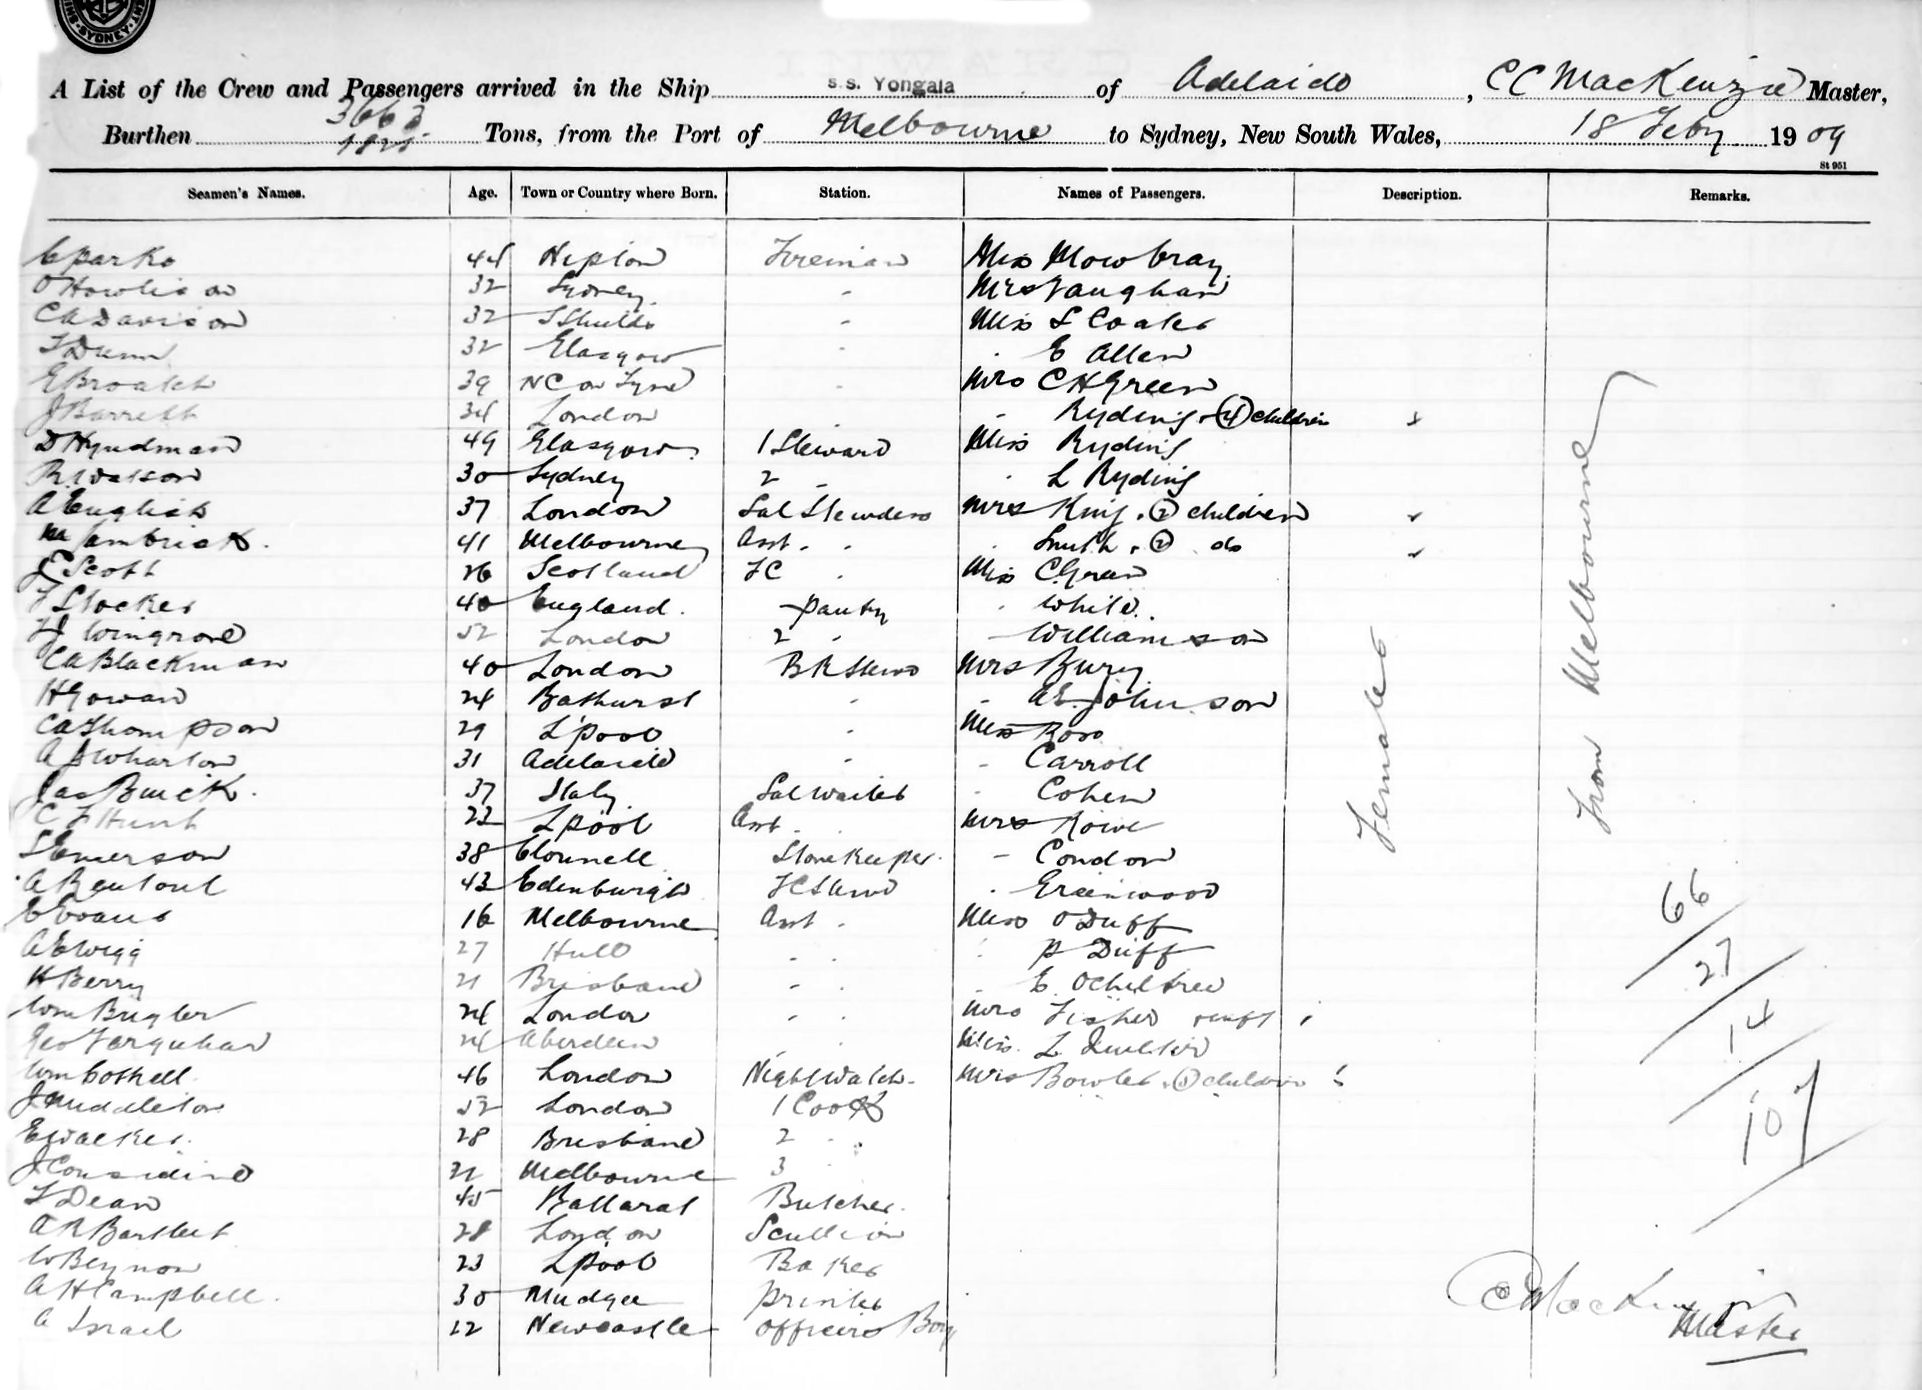 SYDNEY
A List of the Crew and Passengers arrived in the Ship s.s. Yongala of Adelaide, CC MacKenzie Master,
Burthen 3663 1825 Tons, from the Port of Melbourne to Sydney, New South Wales, 18 Feby 1909
St 951
Seamen's Names. Age. Town or Country where Born. Station. Names of Passengers. Description. Remarks.
44 Fireman Miss Mowbray
32 Sydney - Mrs Vaughan
CA Davison 32 S Shields - Miss L Coates
T Dunn 32 Glasgow - E Allen
39 NC on Tyne - Mrs CH Green
J Barrett 34 London - Ryding + 4 children
D Hyndman 49 Glasgow 1 Steward Miss Ryding
R Watson 30 Sydney 2 - - L Ryding
A English 37 London Sal Stewdess Mrs King + 2 children
41 Melbourne Asst - - Smith + 2 do
J Scott 26 Scotland FC - Miss C Green
F Stocker 40 England. Pantry - White
Wingrove 52 London 2 - - Williamson
CA Blackman 40 London BR Stewd Mrs Bury
H Gowan 24 Bathurst - - AE Johnson
CA Thompson 29 L'pool - Miss Ross
A J Wharton 31 Adelaide - - Carroll
Jas Buick 37 Italy Sal Waiter - Cohen
C F Hunt 22 L'pool Asst - Mrs Rowe
S Emerson 38 Clonmell Storekeeper - Condon
A Rentoul 43 Edinburgh FC Stewd - Greenwood
E Evans 16 Melbourne Asst - Miss O Duff
AE Wigg 27 Hull - - - P Duff
H Berry 21 Brisbane - - - E Ochiltree
Wm Bugler 24 London - - Mrs Fisher + inft
Geo Farquhar 24 Aberdeen - Miss L
Wm Cottrell 46 London Night Watch Mrs Bowles + 3 children
J Middleton 52 London 1 Cook
E Walker 28 Brisbane 2 -
J Considine 22 Melbourne 3 -
T Dean 45 Ballarat Butcher
A R Bartlett 28 London Scullion
W Beynon 23 L'pool Baker
A H Campbell 30 Mudgee Printer
A Israel 22 Newcastle Officers Boy
Females
From Melbourne
66
27
14
107
CC MacKenzie
Master